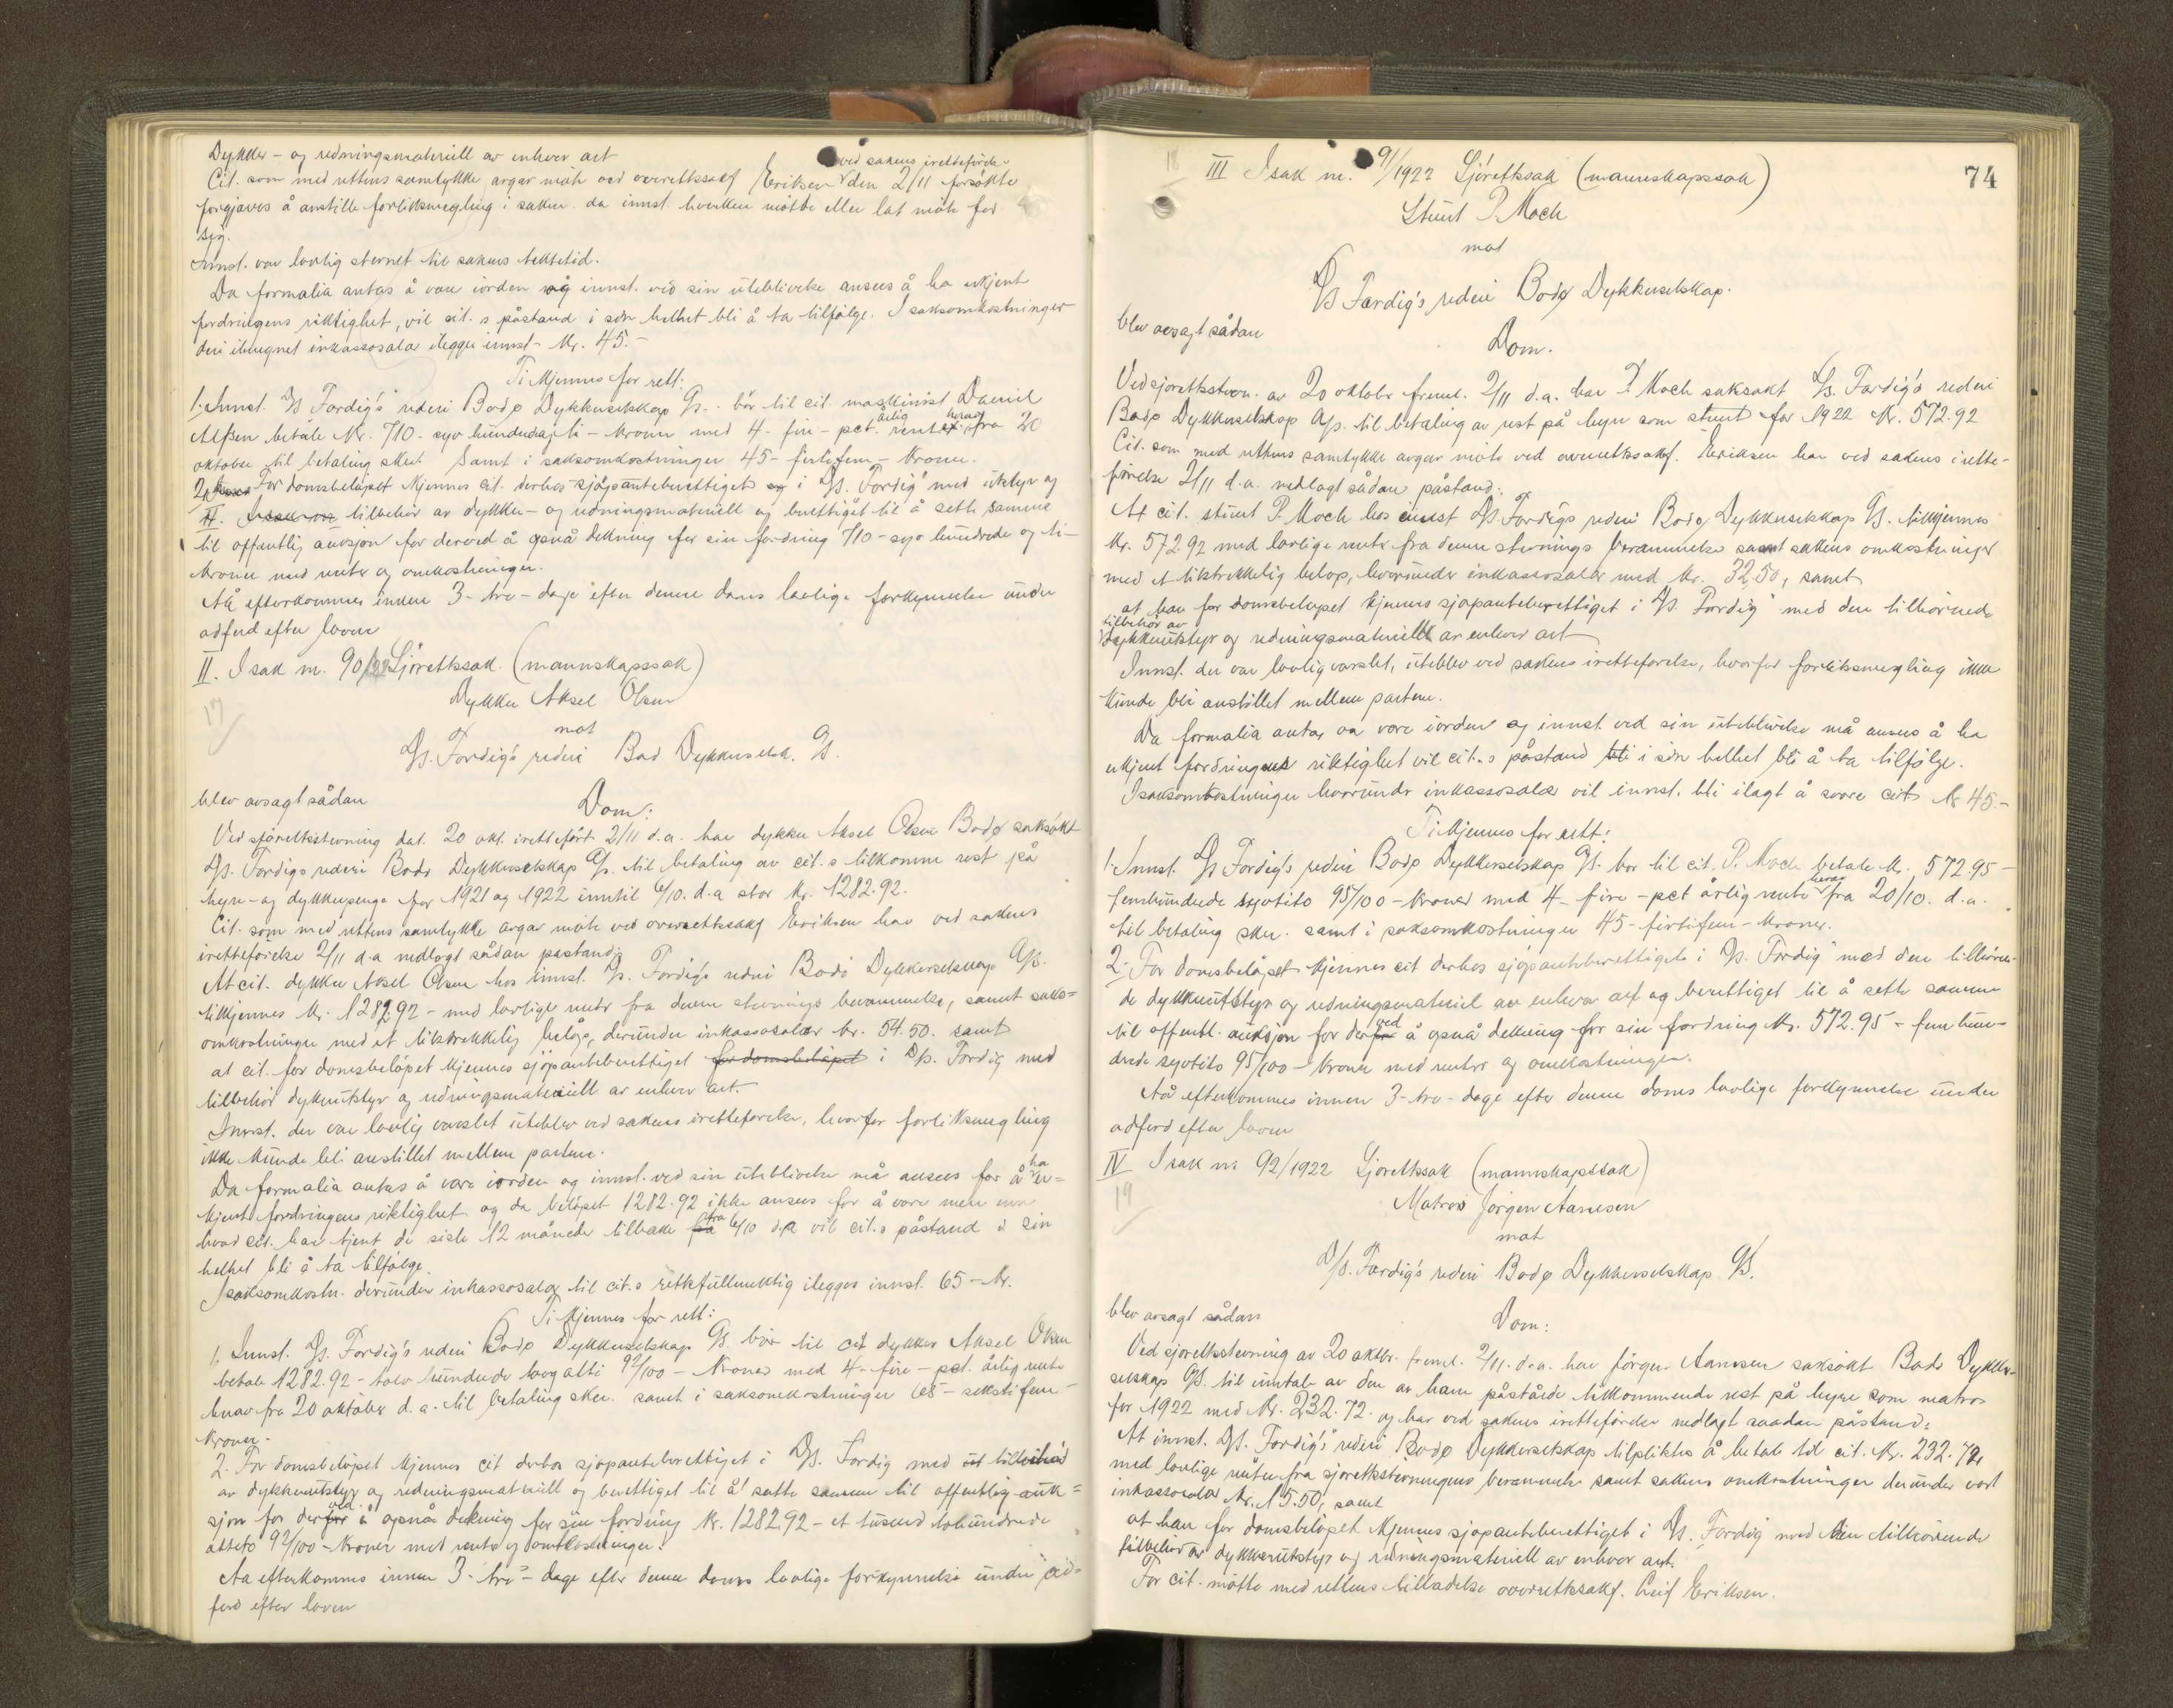 Dykker- og redningsmateriell av enhver art
Cit. som med rettens samtykke avgav møte ved overrettssakf Eriksen ved sakens iretteføre- den 2/11 forsøkte
forgjæves å anstille forliksmegling i saken da innst. hverken møtte eller lat møte for
sig.
Innst. var lovlig stevnet til sakens tektetid.
Da formalia antas å være iorden og innst. ved sin uteblivelse ansees å ha erkjent
fordringens riktighet, vil cit.s påstand i sin helhet bli å ta tilfølge. I saksomkostninger
deri iberegnet inkassosalær ilegges innst- kr. 45.-
Ti kjennes for rett:
1. Innst. D/s Fordig's rederi Bodø Dykkerselskap A/s. bør til cit. maskinist Daniel
Alfsen betale kr. 710.- syv hundredeogti - kroner med 4 - fire - pct. årlig rente herav fra 20
oktober til betaling skjer. Samt i saksomkostninger 45 - førtifem - kroner.
2. For domsbeløpet kjennes cit. derhos sjøpanteberettiget i D/s. Fordig med utstyr og
II. I sak nr. tilbehør av dykker- og redningsmateriell og berettiget til å sette samme
til offentlig auksjon for derved å opnå dekning for sin fordring 710 - syv hundrede og ti -
kroner med renter og omkostninger.
Å efterkommes innen 3 - tre - dage efter denne doms lovlige forkynnelse under
adferd efter loven
II. I sak nr. 90/22 Sjørettssak. (mannskapssak)
17
Dykker Aksel Olsen
mot
D/s. Fordig's rederi Bod Dykkerselsk. A/s.
blev avsagt sådan
Dom:
Ved sjørettsstevning dat. 20 okt. iretteført 2/11 d.a. har dykker Aksel Olsen Bodø saksøkt
D/s. Fordigs rederi Bodø Dykkerselskap A/s. til betaling av cit.s tilkomne rest på
hyre- og dykkerpenge for 1921 og 1922 inntil 6/10. d.a stor kr. 1282.92.
Cit. som med rettens samtykke avgav møte ved overrettssakf Eriksen har ved sakens
iretteførelse 2/11 d.a nedlagt sådan påstand:
At cit. dykker Aksel Olsen hos innst. D/s. Fordig's rederi Bodø Dykkerselskap A/s.
tilkjennes kr. 1282.92 - med lovlige renter fra denne stevnings berammelse, samt saks=
omkostninger med et tilstrekkelig beløp, derunder inkassosalær kr. 54.50. samt
at cit. for domsbeløpet kjennes sjøpanteberettiget for domsbeløpet i D/s. Fordig med
tilbehør dykkerutstyr og redningsmateriell av enhver art.
Innst. der var lovlig varslet uteblev ved sakens iretteførelse, hvorfor forliksmegling
ikke kunde bli anstillet mellem partene.
Da formalia antas å være iorden og innst. ved sin uteblivelse må ansees for å ha er=
kjent fordringens riktighet og da beløpet 1282.92 ikke ansees for å være mere enn
hvad cit. har tjent de siste 12 måneder tilbake fra 6/10 d.a vil cit.s påstand i sin
helhet bli å ta tilfølge.
I saksomkostn. derunder inkassosalær til cit.s rettsfullmektig ilegges innst. 65 - kr.
Ti kjennes for rett:
1. Innst. D/s. Fordig's rederi Bodø Dykkerselskap A/s. bør til cit dykker Aksel Olsen
betale 1282.92 - tolv hundrede toogåtti 92/100 - kroner med 4 - fire - pct. årlig rente
herav fra 20 oktober d.a. til betaling skjer. samt i saksomkostninger 65 - sekstifem -
kroner.
2. For domsbeløpet kjennes cit derhos sjøpanteberettiget i D/s. Fordig med ut tilbehør
av dykkerutstyr og redningsmateriell og berettiget til å sette samme til offentlig auk=
sjon for derved å opnå dekning for sin fordring kr. 1282.92 - et tusend tohundrede
åtteto 92/100 - kroner med rente og omkostninger.
Å efterkommes innen 3 - tre - dage efter denne doms lovlige forkynnelse under ad=
ferd efter loven
74
18
III I sak nr. 91/1922 Sjørettssak (mannskapssak)
Stuert P. Moch
mot
D/s Fordig's rederi Bodø Dykkerselskap.
blev avsagt sådan
Dom.
Ved sjørettsstevn. av 20 oktober freml. 2/11 d.a. har P. Moch saksøkt D/s. Fordig's rederi
Bodø Dykkerselskap A/s. til betaling av rest på hyre som stuert for 1922 kr. 572.92
Cit. som med rettens samtykke avgav møte ved overrettssakf. Eriksen har ved sakens irette-
førelse 2/11 d.a. nedlagt sådan påstand:
At cit. stuert P. Moch hos innst D/s Fordigs rederi Bodø Dykkerselskap A/s. tilkjennes
kr. 572.92 med lovlige renter fra denne stevnings berammelse samt sakens omkostninger
med et tilstrekkelig beløp, hvorunder inkassosalær med kr. 32.50, samt
at han for domsbeløpet kjennes sjøpanteberettiget i D/s. Fordig" med den tilhørende
tilbehør av
dykkerutstyr og redningsmateriell av enhver art
Innst. der var lovlig varslet, uteblev ved sakens iretteførelse, hvorfor forliksmegling ikke
kunde bli anstillet mellem partene.
Da formalia antas å være iorden og innst. ved sin uteblivelse må ansees å ha
erkjent fordringens riktighet vil cit.s påstand bli i sin helhet bli å ta tilfølge.
I saksomkostninger hvorunder inkassosalær vil innst. bli ilagt å svare cit. kr 45.-
Ti kjennes for rett:
1. Innst. D/s Fordig's rederi Bodø Dykkerselskap A/s. bør til cit. P. Moch betale kr. 572.95 -
femhundrede syvtito 95/100 - kroner med 4 - fire - pct årlig rente herav fra 20/10. d.a.
til betaling skjer. samt i saksomkostninger 45 - førtifem - kroner.
2. For domsbeløpet kjennes cit derhos sjøpanteberettiget i D/s. Fordig" med den tilhøren-
de dykkerutstyr og redningsmateriel av enhver art og berettiget til å sette samme
til offentl. auksjon for derved å opnå dekning for sin fordring kr. 572.95 - fem hun-
drede syvtito 95/100 - kroner med renter og omkostninger.
Å efterkommes innen 3 - tre - dage efter denne doms lovlige forkynnelse under
adferd efter loven
IV I sak nr. 92/1922 Sjørettssak (mannskapssak)
19
Matros Jørgen Aanesen
mot
D/s. Fordig's rederi Bodø Dykkerselskap A/s.
blev avsagt sådan
Dom:
Ved sjørettsstevning av 20 oktbr. freml. 2/11. d.a. har Jørgen Aanesen saksøkt Bodø Dykker-
selskap A/s. til inntale av den av ham påståtte tilkommende rest på hyre som matros
for 1922 med kr. 232.72. og har ved sakens iretteførelse nedlagt saadan påstand:
At innst. D/s. Fordig's rederi Bodø Dykkerselskap tilpliktes å betale til cit. kr. 232.72
med lovlige renter fra sjørettsstevningens berammelse samt sakens omkostninger derunder vort
inkassosalær kr. 15.50, samt
at han for domsbeløpet kjennes sjøpanteberettiget i D/s. Fordig med den tilhørende
tilbehør av dykkerutstyr og redningsmateriell av enhver art.
For cit. møtte med rettens tilladelse overrettssakf. Leif Eriksen.